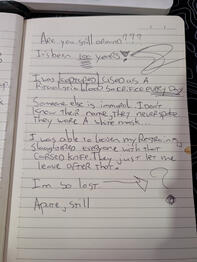 Are you still around???
It's been 100 years!
I was captured, used as a
Ritualistic Blood Sacrifice every day
Someone else is immortal. I don't
know their name, they never spoke
They wore a white mask...
I was able to loosen my Restraints
slaughtered everyone with that
cursed knife. They just let me
leave after that.
I'm so lost
Apate, still